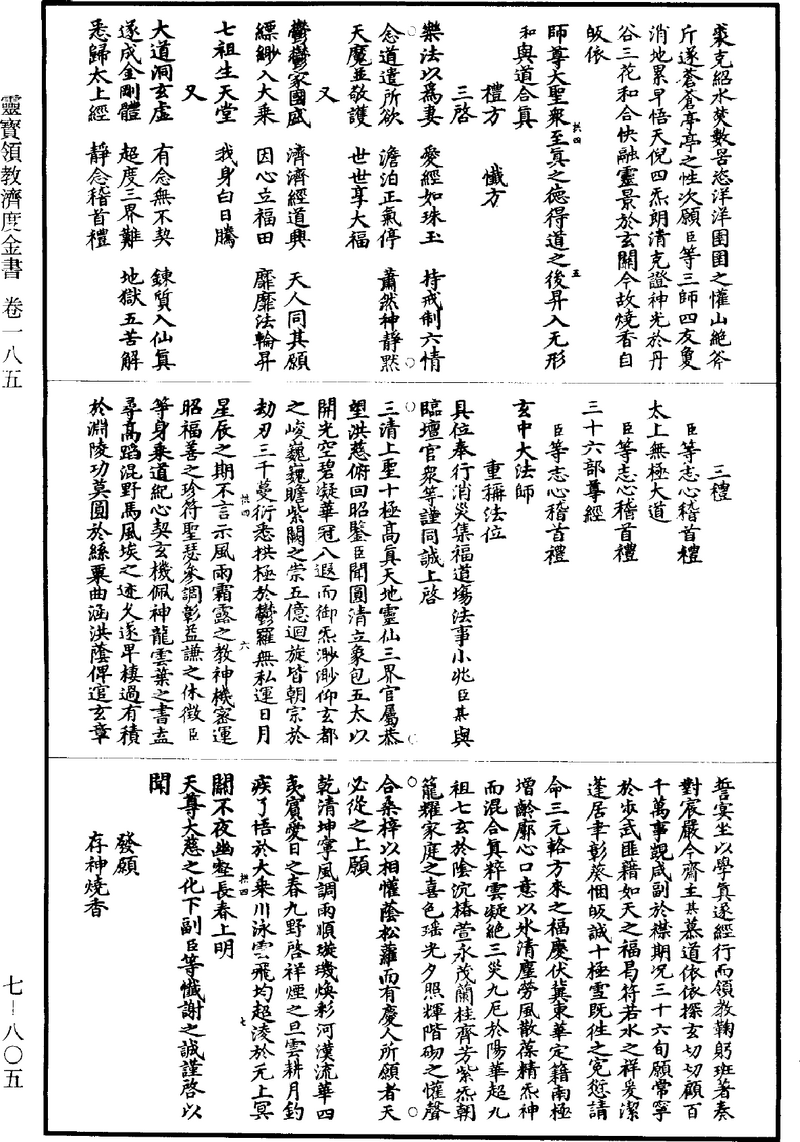 裘克紹水焚數罟恣洋洋圉圉之懽山絶斧
斤遂蒼蒼亭亭之性次願臣等三師四友夐
消地累早悟天倪四炁朗清克證神光於丹
谷三花和合快融靈景於玄關今故燒香自
皈依
師尊大聖衆至真之德得道之後昇入无形
和與道合真
禮方 懺方
三啓
樂法以爲妻 愛經如珠玉 持戒制六情
念道遣所欲 澹泊正氣停 蕭然神靜默
天魔並敬護 世世享大福
又
鬱鬱家國盛 濟濟經道興 天人同其願
縹緲入大乘 因心立福田 靡靡法輪昇
七祖生天堂 我身白日騰
又
大道洞玄虛 有念無不契 鍊質入仙真
遂成金剛體 超度三界難 地獄五苦解
悉歸太上經 靜念稽首禮
三禮
臣等志心稽首禮
太上無極大道
臣等志心稽首禮
三十六部尊經
臣等志心稽首禮
玄中大法師
重稱法位
具位奉行消災集福道場法事小兆臣某與
臨壇官衆等謹同誠上啓
三清上聖十極高真天地靈仙三界官屬恭
望洪慈俯回昭鑒臣聞圓清立象包五太以
開光空碧凝華冠八遐而御炁渺渺仰玄都
之峻巍巍瞻紫闕之崇五億迴旋皆朝宗於
劫刃三千蔓衍悉拱極於鬱羅無私運日月
星辰之期不言示風雨霜露之教神機密運
昭福善之珍符聖瑟參調彰益謙之休徵臣
等身乘道紀心契玄機佩神龍雲葉之書盍
尋高蹈混野馬風埃之迹久遂早棲過有積
於淵陵功莫圓於絲粟曲涵洪蔭俾逭玄章
誓宴坐以學真遂經行而領教鞠躬班著奏
對宸嚴今齋主某慕道依依探玄切切顧百
千萬事覬咸副於襟期况三十六旬願常寧
於步武匪藉如天之福曷符若水之祥爰潔
蓬居聿彰葵悃皈誠十極雪既往之寃愆請
命三元輅方來之福慶伏冀東華定籍南極
增齡廓心口意以氷清塵勞風散葆精炁神
而混合真粹雲凝絶三災九厄於陽華超九
祖七玄於陰沉椿萱永茂蘭桂齊芳紫炁朝
籠耀家庭之喜色瑶光夕照輝階砌之懽聲
合桑梓以相懽蔭松蘿而有慶人所願者天
必從之上願
乾清坤寧風調雨順璇璣煥彩河漢流華四
夷賓愛日之春九野啓祥煙之旦雲耕月釣
疾了悟於大乘川泳雲飛均超淩於元上冥
關不夜幽壑長春上明
天尊大慈之化下副臣等懺謝之誠謹啓以
聞
發願
存神燒香
拱四
五
拱四
六
拱四
七
靈寶領教濟度金書 卷一八五
七—八〇五